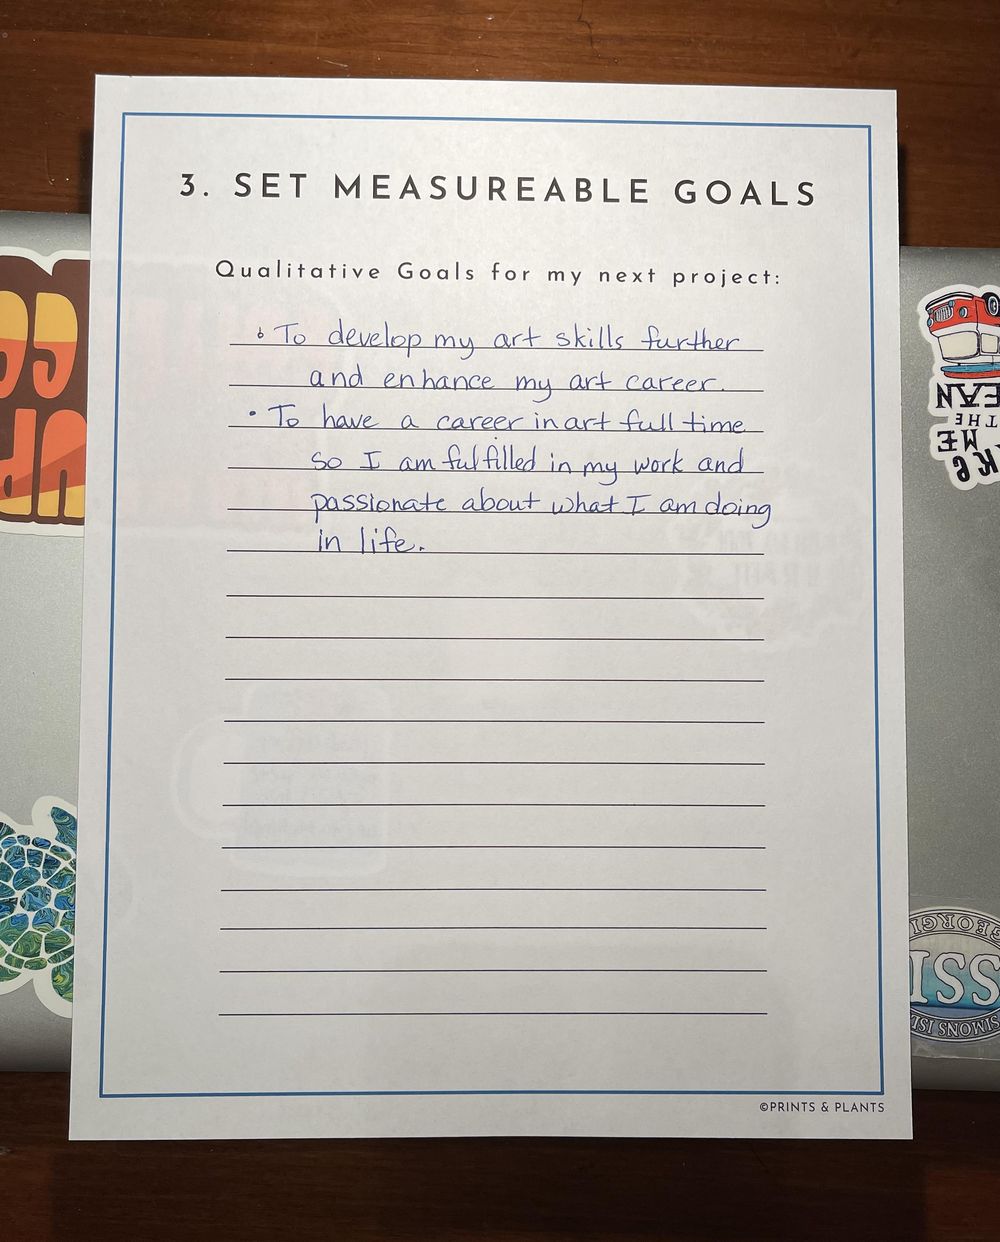 3. SET MEASUREABLE GOALS
Qualitative Goals for my next project:
• To develop my art skills further
and enhance my art career.
• To have a career in art full time
so I am fulfilled in my work and
passionate about what I am doing
in life.
©PRINTS & PLANTS
THE
ME
GEORGI
SSI
SIMONS ISL